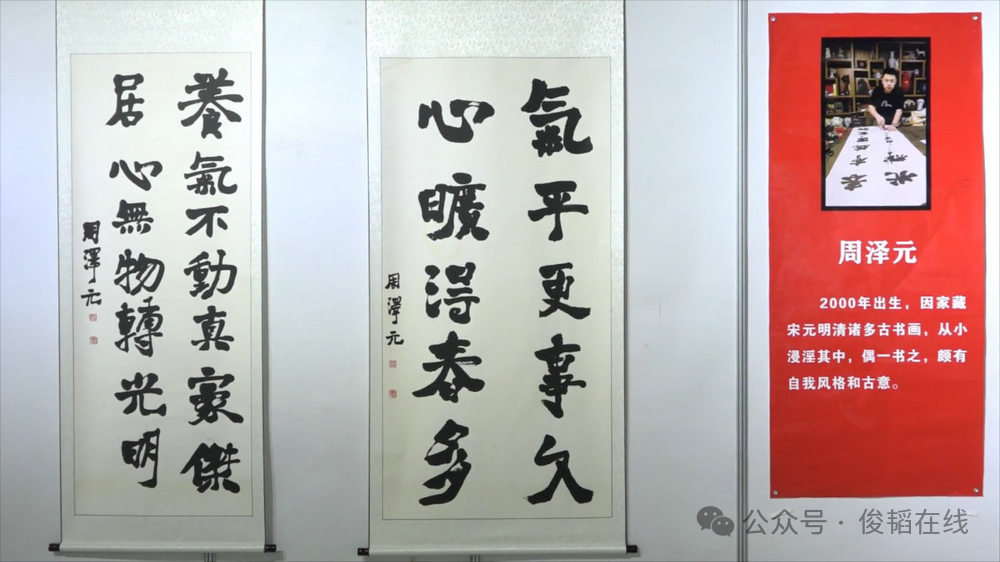 養氣不動真豪傑
居心無物轉光明
周澤元
氣平更事久
心曠得春多
周澤元
周泽元
2000年出生，因家藏
宋元明清诸多古书画，从小
浸淫其中，偶一书之，颇有
自我风格和古意。
公众号·俊韬在线